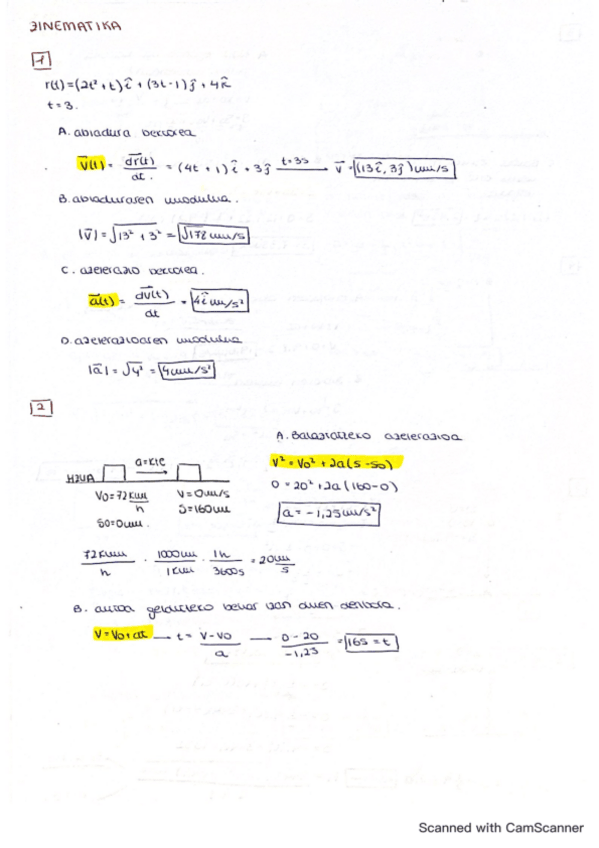 ZINEMATIKA
1
r(t) = (2t² + t) î + (3t - 1) ĵ + 4k̂
t = 3.
A. abiadura bektorea
v⃗(t) = dr⃗(t)/dt = (4t + 1) î + 3ĵ t=3s → v⃗ = (13î, 3ĵ) m/s
B. abiaduraren modulua.
|v⃗| = √(13² + 3²) = √178 m/s
C. azelerazio bektorea.
a⃗(t) = dv⃗(t)/dt = 4î m/s²
D. azelerazioaren modulua
|a⃗| = √4² = 4 m/s²
2
A. Balaztatzeko azelerazioa
a = kte
V² = V0² + 2a (S - S0)
HZUA
0 = 20² + 2a (160 - 0)
V0 = 72 km/h V = 0 m/s
S0 = 0 m. S = 160 m
a = -1,25 m/s²
72 km/h · 1000 m/1 km · 1h/3600s = 20 m/s
B. autoa gelditzeko behar izan duen denbora.
V = V0 + at → t = (V - V0)/a → (0 - 20)/-1,25 = 16s = t
Scanned with CamScanner